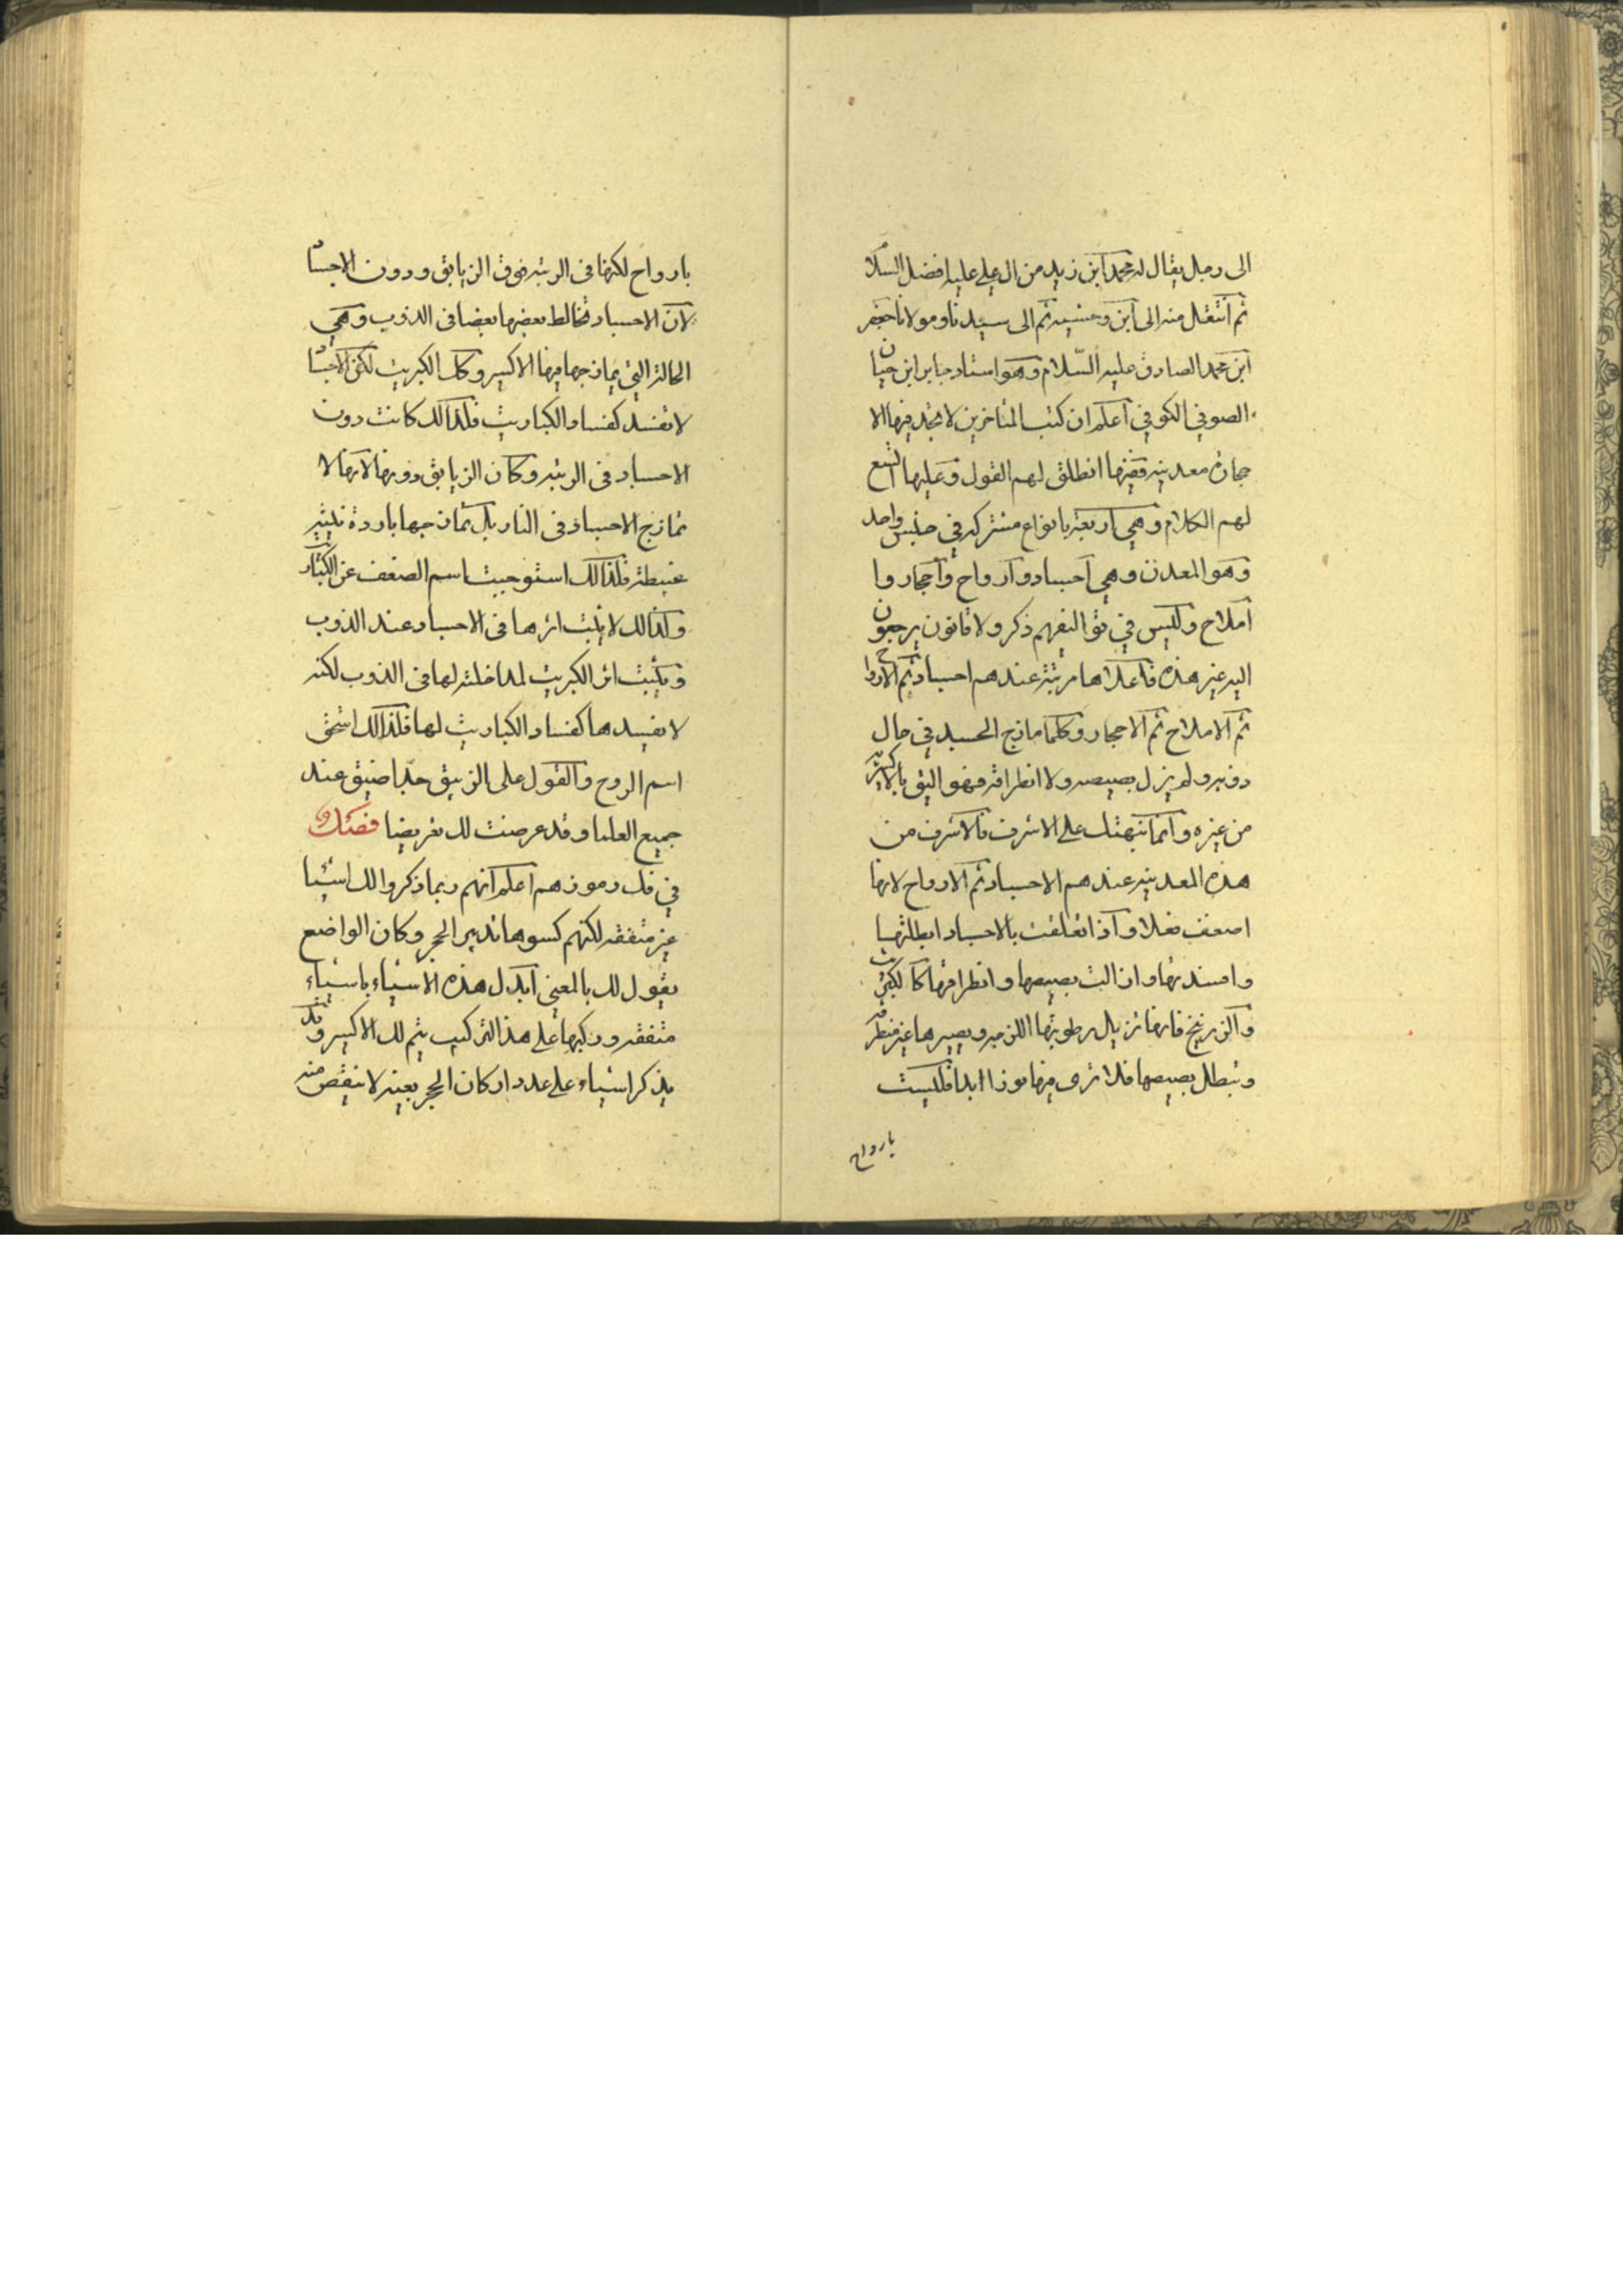 الى رجل يقال له محمد ابن زيد من ال علي عليه افضل السلام
ثم انتقل منه الى ابن وحشيه ثم الى سيدنا ومولانا جعفر
ابن محمد الصادق عليه السّلام وهو استاد جابر ابن حيان
الصوفي الكوفي اعلم ان كتب المتاخرين لا تجد فيها الا
حجارة معدنيه ففيها انطلق لهم القول وعليها اتسع
لهم الكلام وهي اربعة بانواع مشتركه في جنس واحد
وهو المعدن وهي اجساد وارواح واحجار وا
املاح وليس في تواليفهم ذكر ولا قانون يرجعون
اليه غير هذه فاعلاها مرتبة عندهم اجساد ثم الارواح
ثم الاملاح ثم الاحجار وكلما مازج الجسد في حال
ذوبه ولم يزل بصيصه ولا انطراقه فهو اليق بالاكسيريه
من غيره وانما نبهتك على الاشرف فالاشرف من
هذه المعدنيه عندهم الاجساد ثم الارواح لانها
اضعف فعلا واذا تعلقت بالاجساد ابطلتها
وافسدتها واذالت بصيصها وانطراقها كالكبريت
والزرنيخ فانها تزيل رطوبتها اللزجه ويصيرها غير منطرقه
وتبطل بصيصها فلا ترى فيها نورا ابدا فليست
بارواح
بارواح لكنها في الرتبه فوق الزيابق ودون الاجساد
لان الاجساد تخالط بعضها بعضا في الذوب وهي
الحالة التي يمازجها فيها الاكسير وكل الكبريت لكن الاجساد
لا تفسد كفساد الكباريت فلذالك كانت دون
الاجساد في الرتبه وكان الزيابق دونها لانها لا
تمازج الاجساد في النار بل تمازجها باردة
فلذالك استوجبت اسم الضعف عن الكباريت
وكذالك لا يثبت اثرها في الاجساد عند الذوب
ويثبت اثر الكبريت لمداخلته لها في الذوب لكنه
لا يفسدها كفساد الكباريت لها فلذالك استحق
اسم الروح والقول على الزيبق جدا ضيق عند
جميع العلما وقد عرضت لك تعريضا فصل
في فك رموزهم اعلم انهم ربما ذكروا لك اشيا
غير متفقه لكنهم كسوها تدبير الحجر وكان الواضع
يقول لك بالمعنى ابدل هذه الاشياء باشياء
متفقه وركبها على هذا التركيب يتم لك الاكسير وقد
يذكر اشياء على عدد اركان الحجر بعينه لا ينقص منه